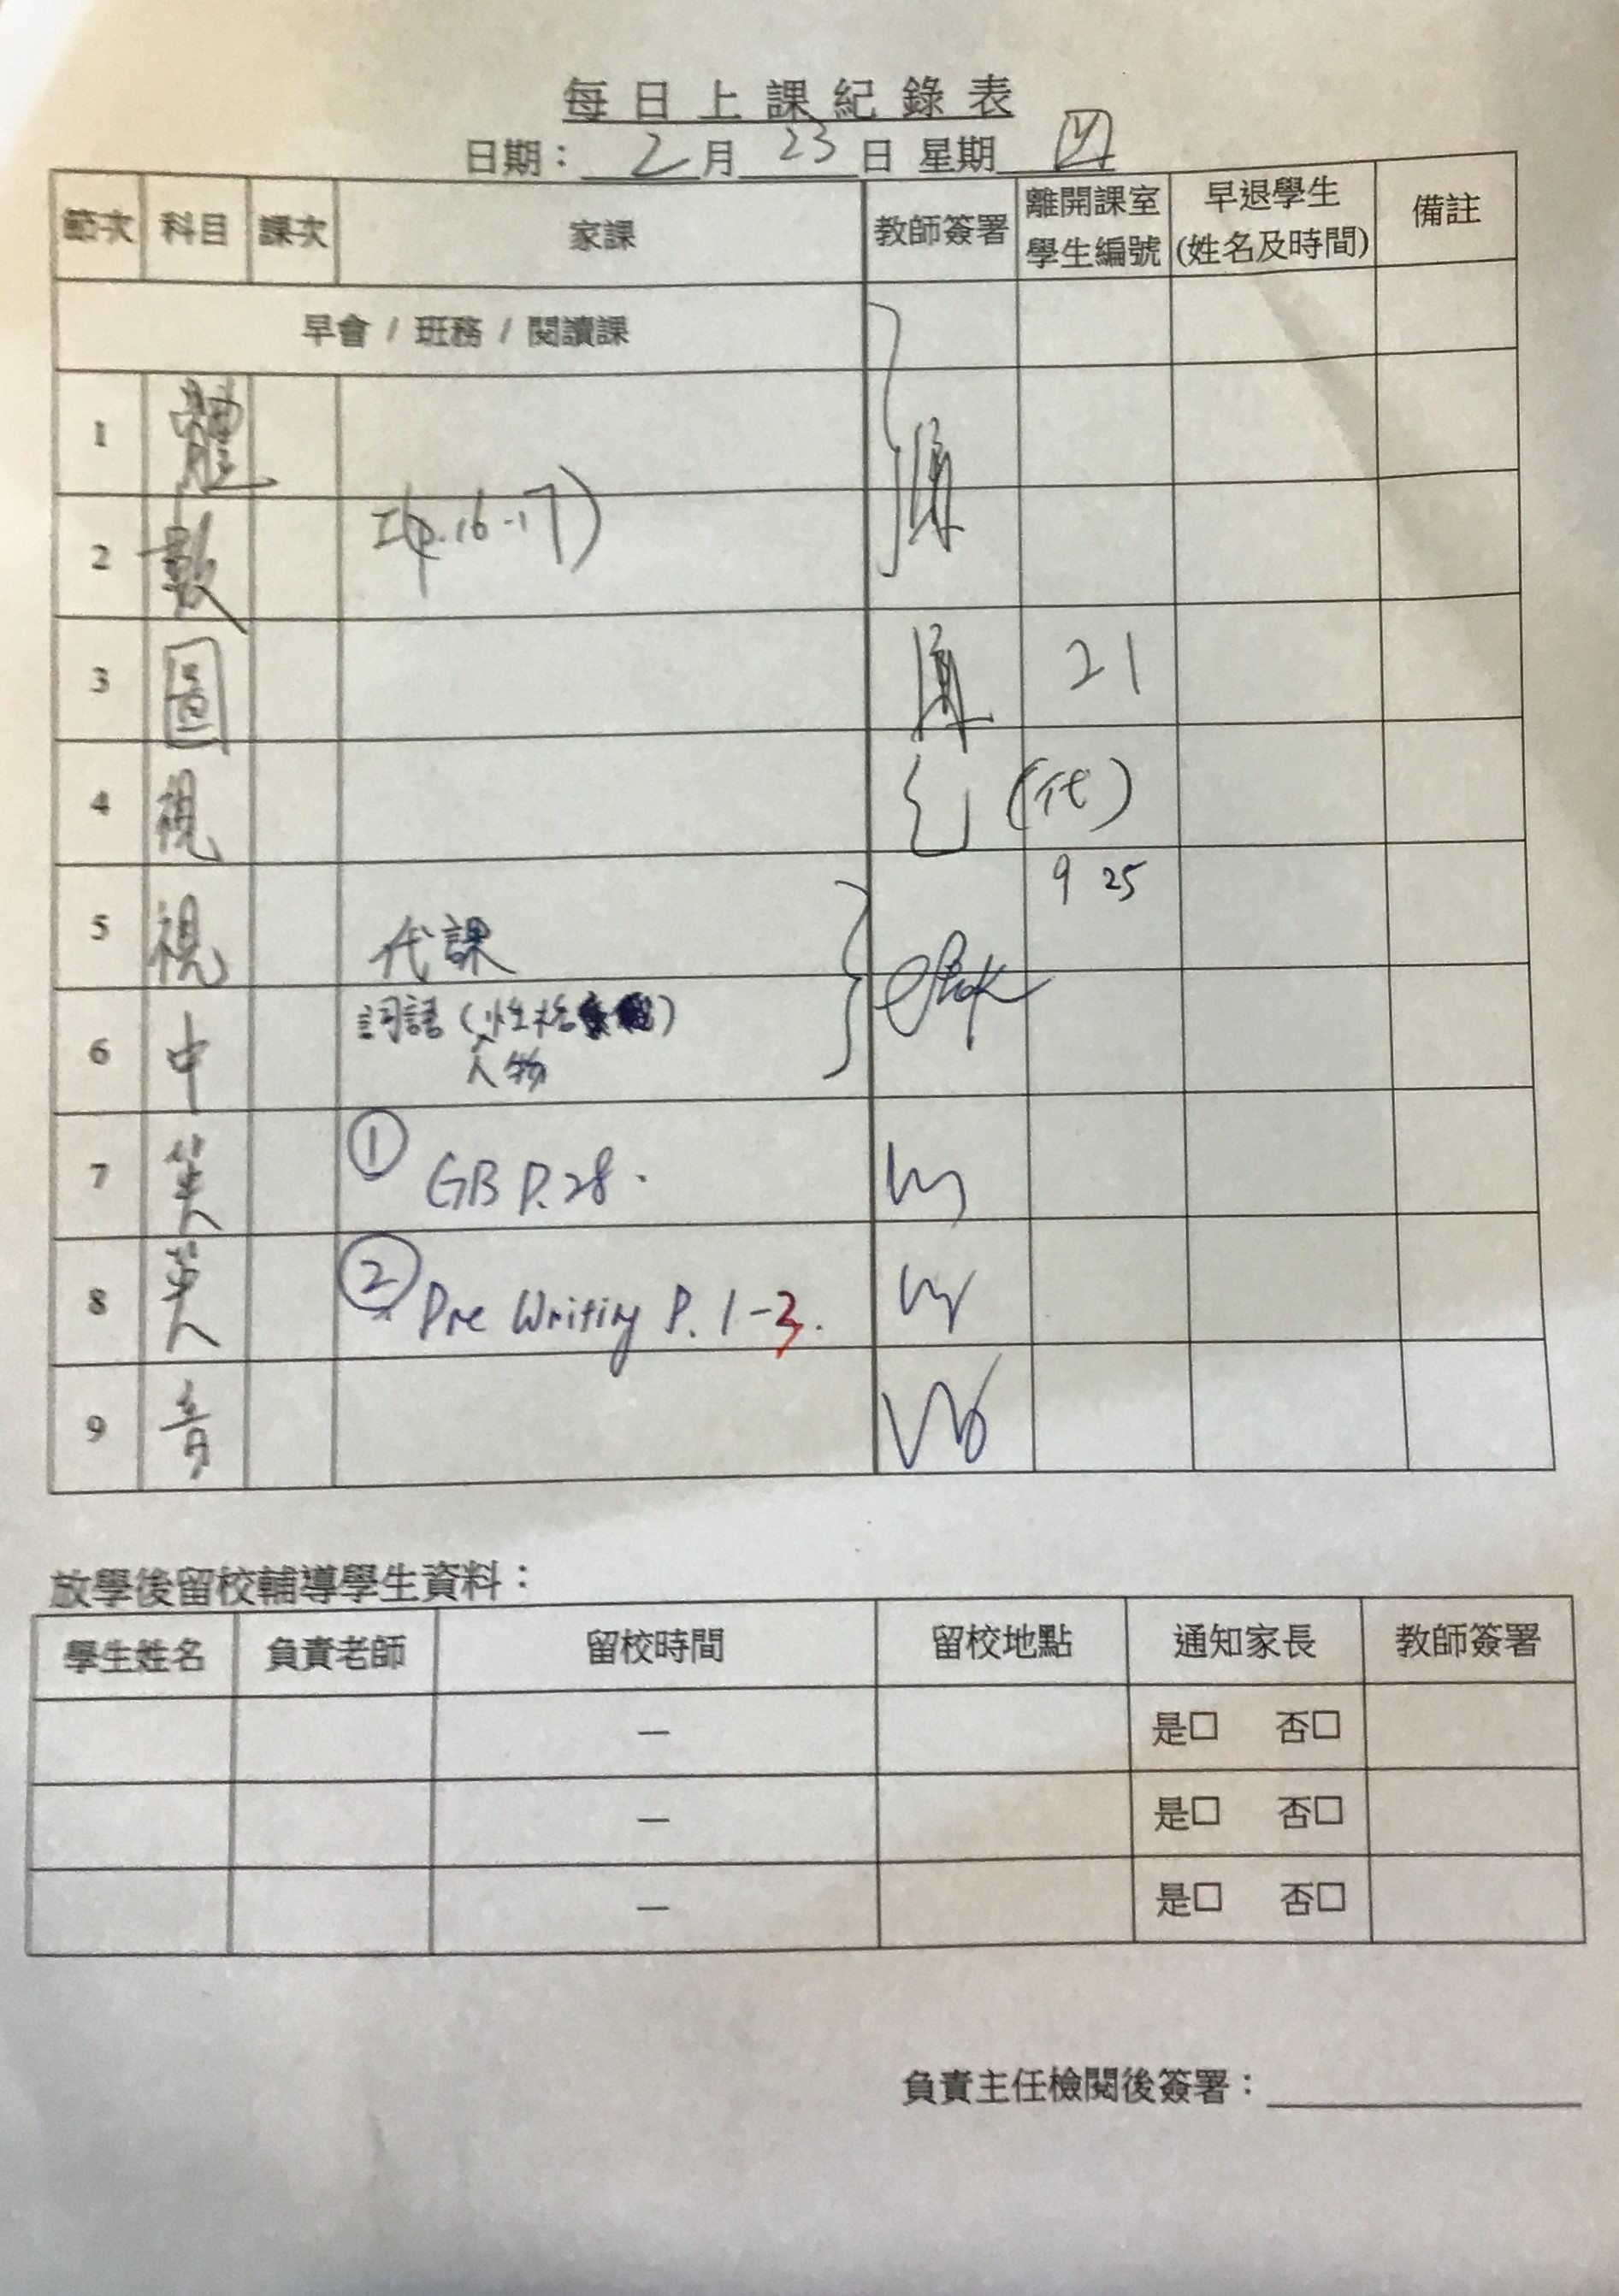 每日上課紀錄表
日期：2月23日 星期四
節次 科目 課次 家課 教師簽署 離開課室學生編號 早退學生(姓名及時間) 備註
早會 / 班務 / 閱讀課
1 體
2 數 I(p.16-17)
3 圖 21
4 視 (代)
9 25
5 視 代課
6 中 詞語(性格
人物
7 英 ① GB P.28.
8 英 ② Pre Writing P. 1-3.
9 音
放學後留校輔導學生資料：
學生姓名 負責老師 留校時間 留校地點 通知家長 教師簽署
— 是□ 否□
— 是□ 否□
— 是□ 否□
負責主任檢閱後簽署：